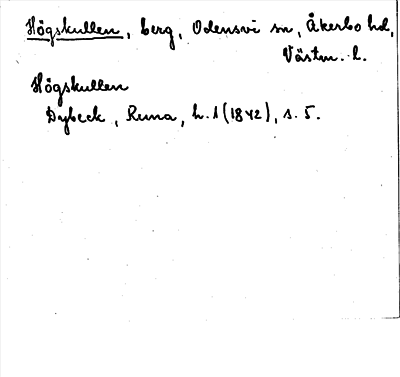 Högskullen, berg, Odensvi sn, Åkerbo hd,
Västm. l.
Högskullen
Dybeck, Runa, h. 1 (1842), s. 5.